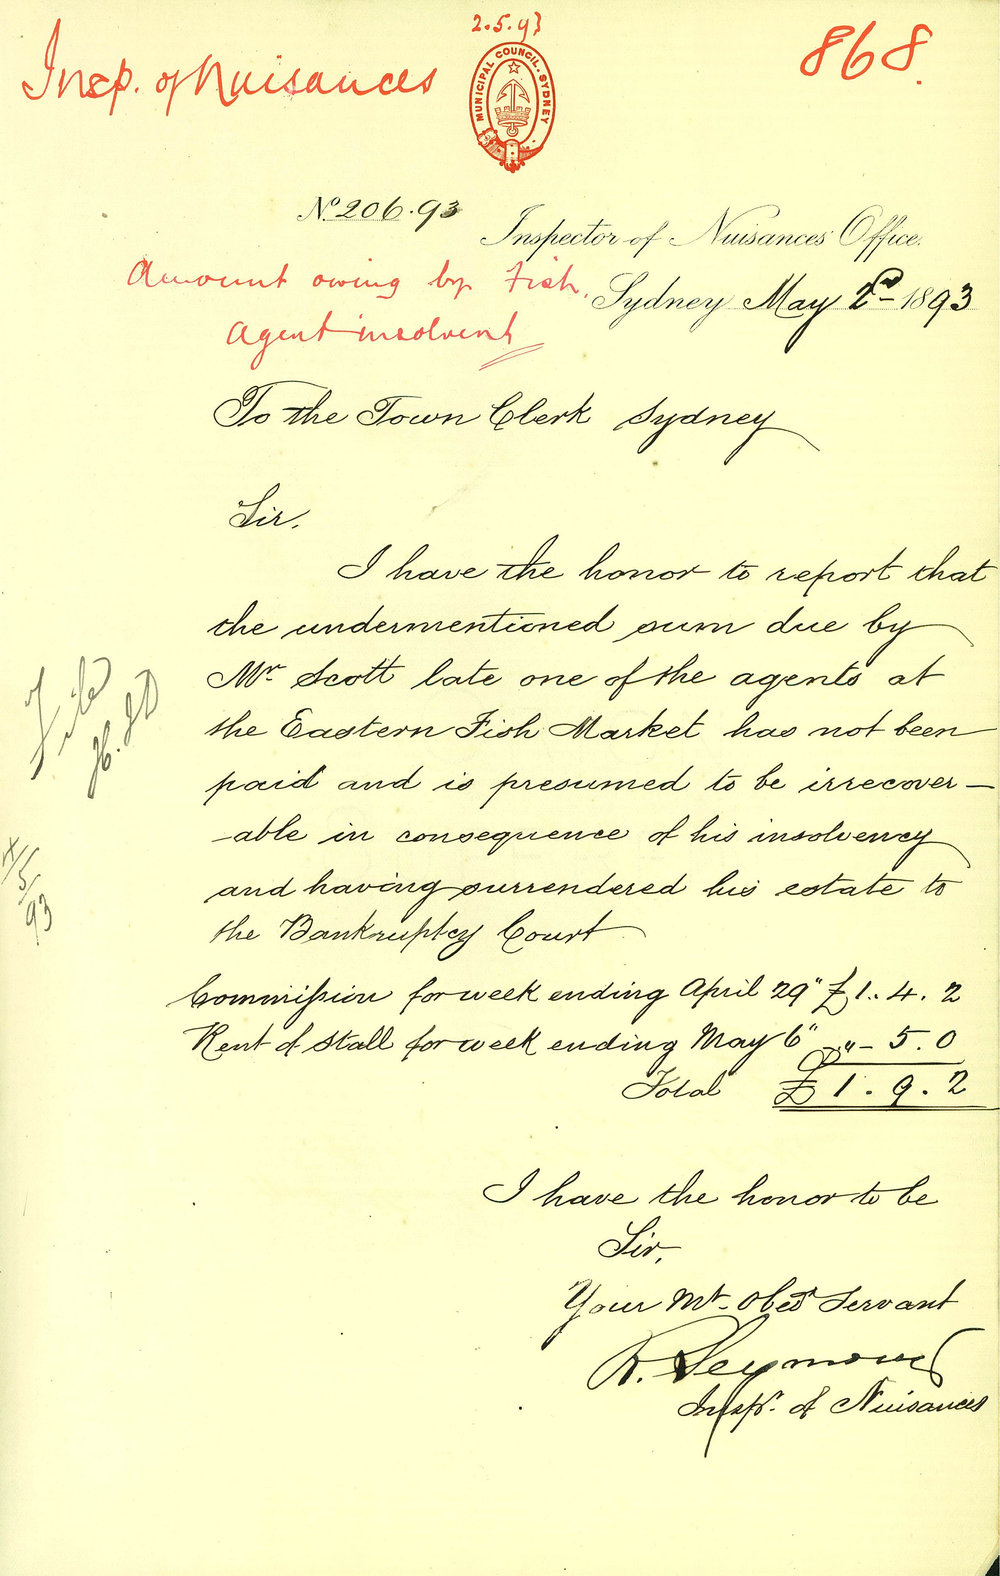 2.5.93
Insp. of Nuisances
868.
MUNICIPAL COUNCIL. SYDNEY
No. 206.93
Inspector of Nuisances Office.
Amount owing by Fish
Agent insolvent
Sydney May 2nd 1893
To the Town Clerk Sydney
Sir,
I have the honor to report that
the undermentioned sum due by
Mr. Scott late one of the agents at
the Eastern Fish Market has not been
paid and is presumed to be irrecover-
-able in consequence of his insolvency
and having surrendered his estate to
the Bankruptcy Court
Commission for week ending April 29" £1. 4. 2
Rent of Stall for week ending May 6" " - 5. 0
Total £1. 9. 2
4/5/93
I have the honor to be
Sir,
Your Mt. Obedt Servant
R. Seymour
Inspr. of Nuisances